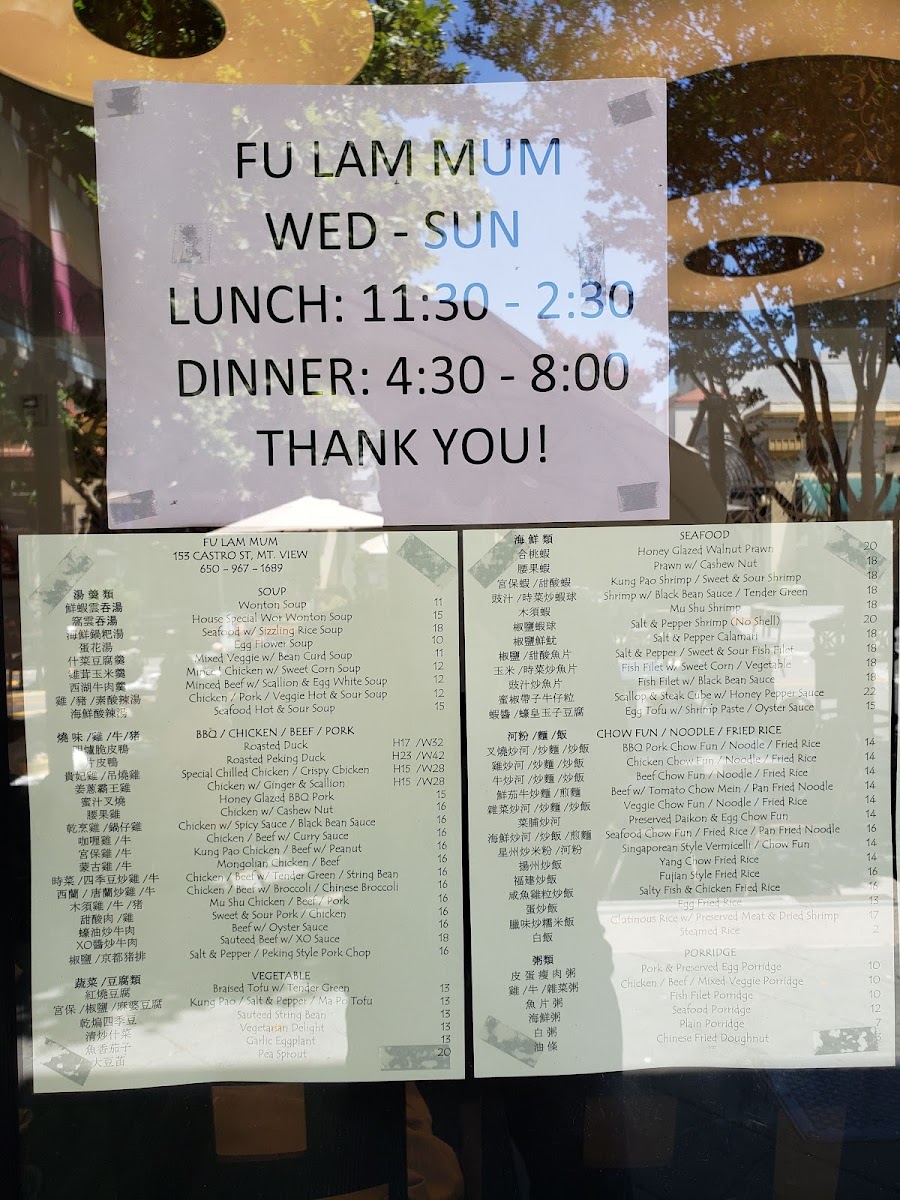 FU LAM MUM
WED - SUN
LUNCH: 11:30 - 2:30
DINNER: 4:30 - 8:00
THANK YOU!
FU LAM MUM
153 CASTRO ST, MT. VIEW
650 - 967 - 1689
湯羹類 SOUP
鮮蝦雲吞湯 Wonton Soup 11
窩雲吞湯 House Special Wor Wonton Soup 15
海鮮鍋粑湯 Seafood w/ Sizzling Rice Soup 18
蛋花湯 Egg Flower Soup 10
什菜豆腐羹 Mixed Veggie w/ Bean Curd Soup 11
雞茸玉米羹 Minced Chicken w/ Sweet Corn Soup 12
西湖牛肉羹 Minced Beef w/ Scallion & Egg White Soup 12
雞/豬/素酸辣湯 Chicken / Pork / Veggie Hot & Sour Soup 12
海鮮酸辣湯 Seafood Hot & Sour Soup 15
燒味/雞/牛/豬 BBQ / CHICKEN / BEEF / PORK
明爐脆皮鴨 Roasted Duck H17 /W32
片皮鴨 Roasted Peking Duck H23 /W42
貴妃雞/吊燒雞 Special Chilled Chicken / Crispy Chicken H15 /W28
姜蔥霸王雞 Chicken w/ Ginger & Scallion H15 /W28
蜜汁叉燒 Honey Glazed BBQ Pork 15
腰果雞 Chicken w/ Cashew Nut 16
乾烹雞/鍋仔雞 Chicken w/ Spicy Sauce / Black Bean Sauce 16
咖喱雞/牛 Chicken / Beef w/ Curry Sauce 16
宮保雞/牛 Kung Pao Chicken / Beef w/ Peanut 16
蒙古雞/牛 Mongolian Chicken / Beef 16
時菜/四季豆炒雞/牛 Chicken / Beef w/ Tender Green / String Bean 16
西蘭/唐蘭炒雞/牛 Chicken / Beef w/ Broccoli / Chinese Broccoli 16
木須雞/牛/豬 Mu Shu Chicken / Beef / Pork 16
甜酸肉/雞 Sweet & Sour Pork / Chicken 16
蠔油炒牛肉 Beef w/ Oyster Sauce 16
XO醬炒牛肉 Sauteed Beef w/ XO Sauce 18
椒鹽/京都豬排 Salt & Pepper / Peking Style Pork Chop 16
蔬菜/豆腐類 VEGETABLE
紅燒豆腐 Braised Tofu w/ Tender Green 13
宮保/椒鹽/麻婆豆腐 Kung Pao / Salt & Pepper / Ma Po Tofu 13
乾煸四季豆 Sauteed String Bean 13
清炒什菜 Vegetarian Delight 13
魚香茄子 Garlic Eggplant 13
大豆苗 Pea Sprout 20
海鮮類 SEAFOOD
合桃蝦 Honey Glazed Walnut Prawn 20
腰果蝦 Prawn w/ Cashew Nut 18
宮保蝦/甜酸蝦 Kung Pao Shrimp / Sweet & Sour Shrimp 18
豉汁/時菜炒蝦球 Shrimp w/ Black Bean Sauce / Tender Green 18
木須蝦 Mu Shu Shrimp 18
椒鹽蝦球 Salt & Pepper Shrimp (No Shell) 20
椒鹽鮮魷 Salt & Pepper Calamari 18
椒鹽/甜酸魚片 Salt & Pepper / Sweet & Sour Fish Filet 18
玉米/時菜炒魚片 Fish Filet w/ Sweet Corn / Vegetable 18
豉汁炒魚片 Fish Filet w/ Black Bean Sauce 18
蜜椒帶子牛仔粒 Scallop & Steak Cube w/ Honey Pepper Sauce 22
蝦醬/蠔皇玉子豆腐 Egg Tofu w/ Shrimp Paste / Oyster Sauce 15
河粉/麵/飯 CHOW FUN / NOODLE / FRIED RICE
叉燒炒河/炒麵/炒飯 BBQ Pork Chow Fun / Noodle / Fried Rice 14
雞炒河/炒麵/炒飯 Chicken Chow Fun / Noodle / Fried Rice 14
牛炒河/炒麵/炒飯 Beef Chow Fun / Noodle / Fried Rice 14
鮮茄牛炒麵/煎麵 Beef w/ Tomato Chow Mein / Pan Fried Noodle 14
雜菜炒河/炒麵/炒飯 Veggie Chow Fun / Noodle / Fried Rice 14
菜脯炒河 Preserved Daikon & Egg Chow Fun 14
海鮮炒河/炒飯/煎麵 Seafood Chow Fun / Fried Rice / Pan Fried Noodle 16
星州炒米粉/河粉 Singaporean Style Vermicelli / Chow Fun 14
揚州炒飯 Yang Chow Fried Rice 14
福建炒飯 Fujian Style Fried Rice 16
咸魚雞粒炒飯 Salty Fish & Chicken Fried Rice 16
蛋炒飯 Egg Fried Rice 13
臘味炒糯米飯 Glutinous Rice w/ Preserved Meat & Dried Shrimp 17
白飯 Steamed Rice 2
粥類 PORRIDGE
皮蛋瘦肉粥 Pork & Preserved Egg Porridge 10
雞/牛/雜菜粥 Chicken / Beef / Mixed Veggie Porridge 10
魚片粥 Fish Filet Porridge 10
海鮮粥 Seafood Porridge 12
白粥 Plain Porridge 7
油條 Chinese Fried Doughnut